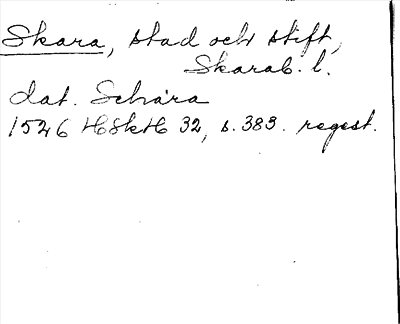 Skara, stad och stift,
Skarab. l.
dat. Schara
1526 HSkH 32, s. 383. regest.